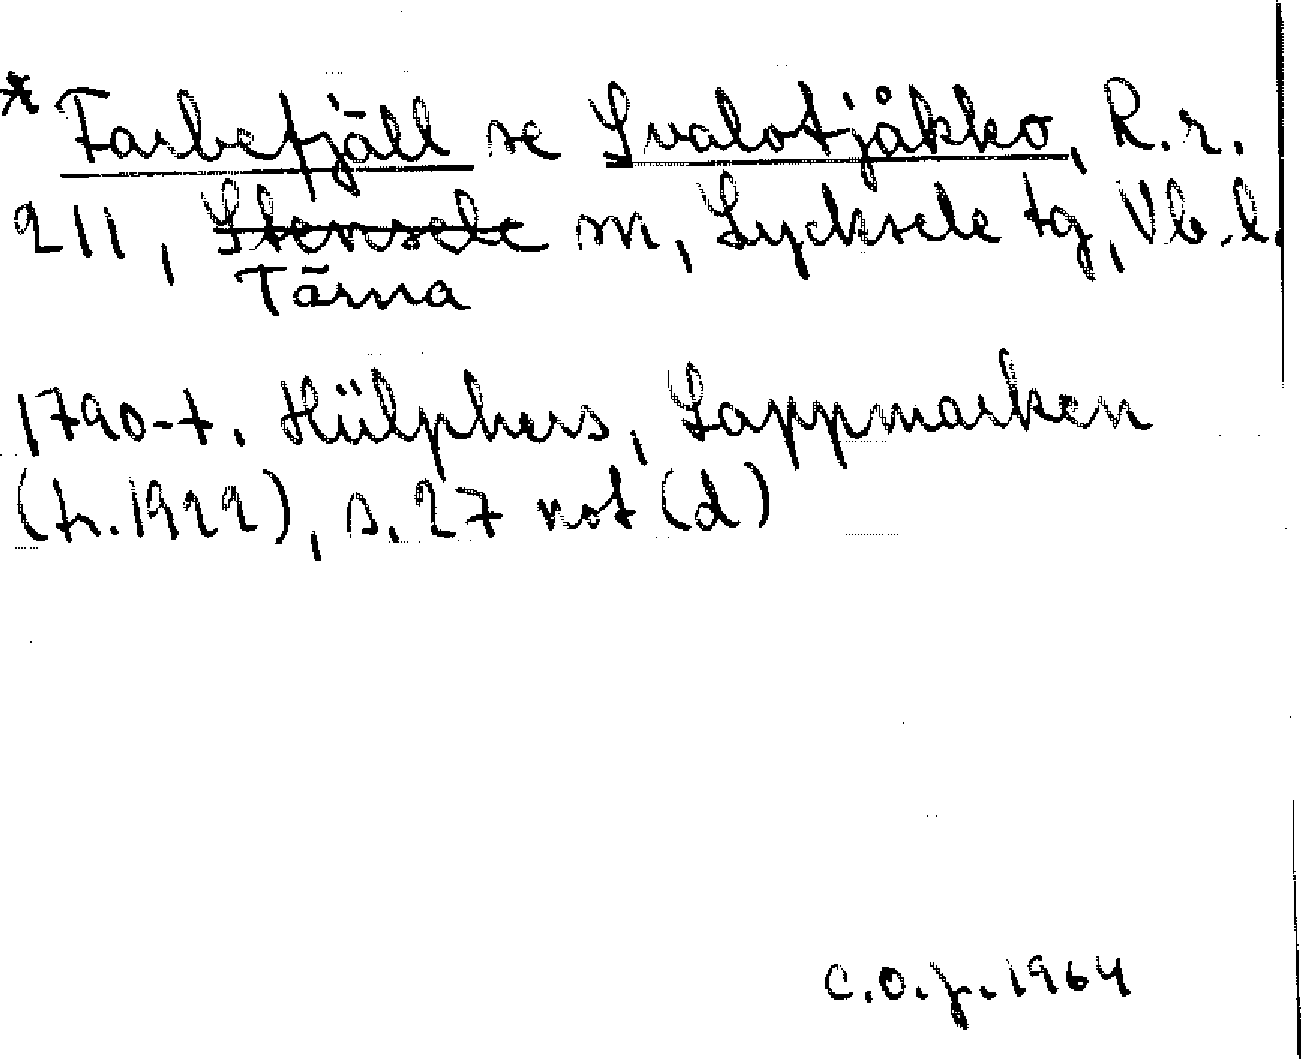 * Farbefjäll se Svalotjåkko, R.r.
211, Stensele sn, Lycksele tg, Vb.l.
Tärna
1790-t. Hülphers, Lappmarken
(tr. 1922), s. 27 not (d)
C.O.J. 1964